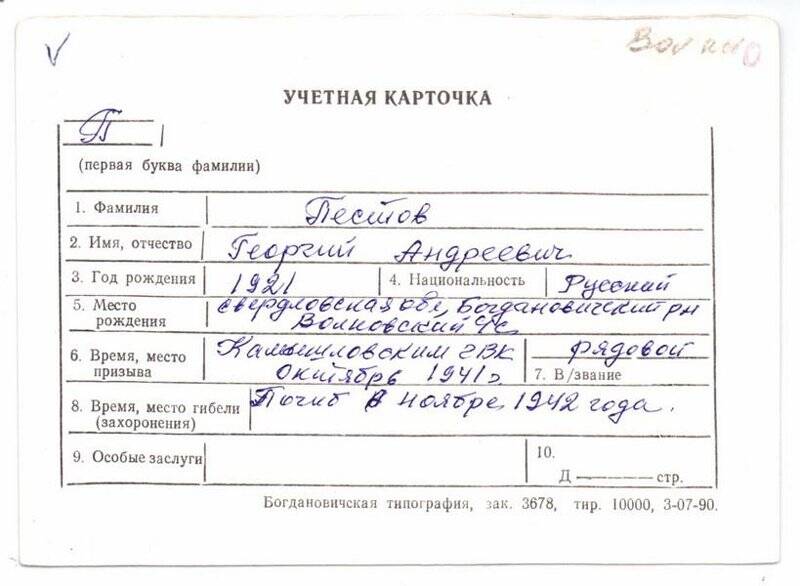 УЧЕТНАЯ КАРТОЧКА
П
(первая буква фамилии)
1. Фамилия Пестов
2. Имя, отчество Георгий Андреевич
3. Год рождения 1921 4. Национальность Русский
5. Место рождения Свердловская обл, Богдановический рн
Волковский с/с
6. Время, место призыва Камышловским ГВК
октябрь 1941г
рядовой
7. В/звание
8. Время, место гибели (захоронения) Погиб в ноябре 1942 года.
9. Особые заслуги
10.
Д — стр.
Богдановичская типография, зак. 3678, тир. 10000, 3-07-90.